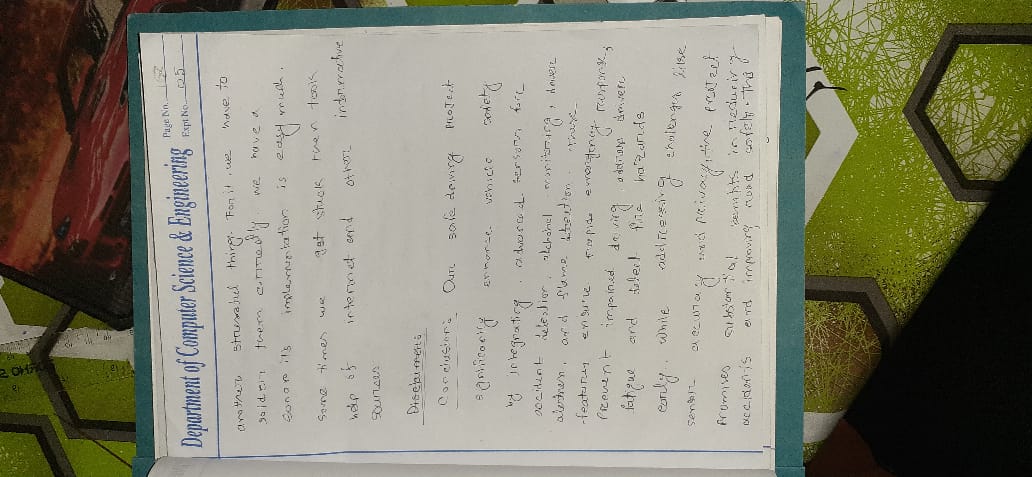 Department of Computer Science & Engineering
Page No.
Expt No. 025
another stressful thing. For it, we have to
solder them correctly we have a
sonar its implementation is easy much.
Some times we got stuck then took
help of internet and other interactive
sources
Conclusion: Our safe driving project
enhance vehicle safety
by integrating advanced sensors for
accident detection, alchohal monitoring, drivers
and flame detection. These
features ensure rapid emergency response,
prevent impaired driving, address drivers
fatigue and detect fire hazards
early. While addressing challenges like
sensor accuracy and privacy, the project
promises benifits in reducing
accidents and improving road safety. The